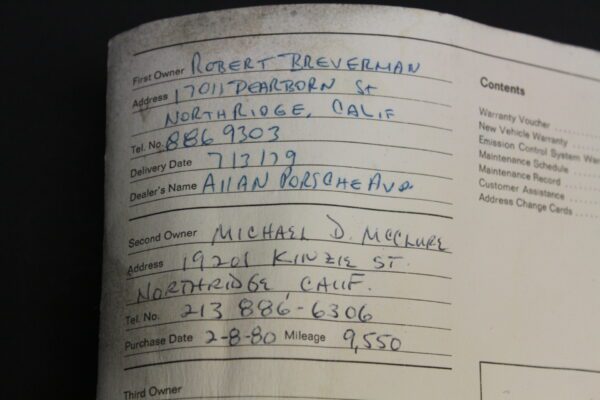 First Owner ROBERT BREVERMAN
Address 17011 DEARBORN St
NORTHRIDGE, CALIF
Tel. No. 886 9303
Delivery Date 7/3/79
Dealer's Name Allan PORSCHE Aud
Second Owner MICHAEL D. McCLURE
Address 19201 KINZIE ST.
NORTHRIDGE, CALIF.
Tel. No. 213 886-6306
Purchase Date 2-8-80 Mileage 9,550
Third Owner
Contents
Warranty Voucher
New Vehicle Warranty
Emission Control System War
Maintenance Schedule
Maintenance Record
Customer Assistance
Address Change Cards